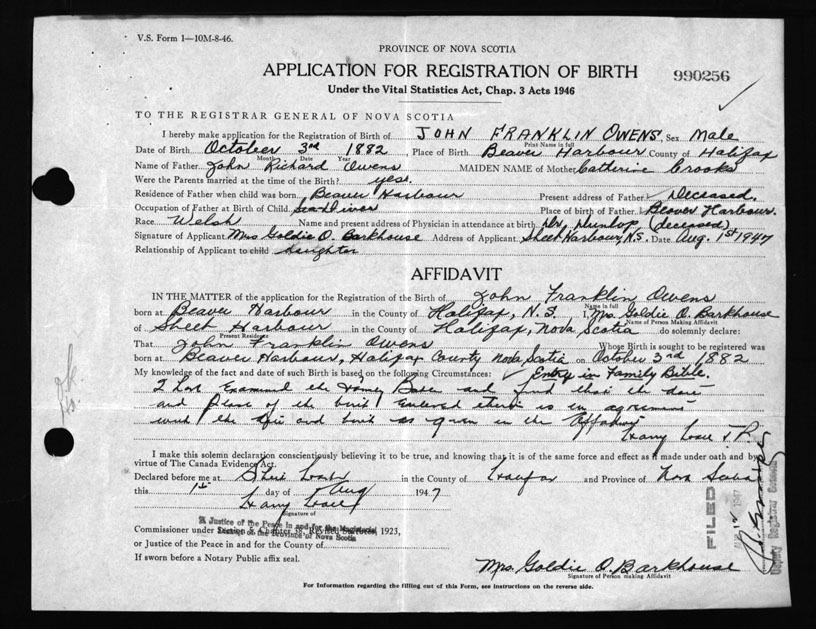 V.S. Form 1—10M-8-46.
PROVINCE OF NOVA SCOTIA
APPLICATION FOR REGISTRATION OF BIRTH
990256
Under the Vital Statistics Act, Chap. 3 Acts 1946
TO THE REGISTRAR GENERAL OF NOVA SCOTIA
I hereby make application for the Registration of Birth of JOHN FRANKLIN OWENS, Sex Male
Print Name in full
Date of Birth October 3rd 1882, Place of Birth Beaver Harbour County of Halifax
Month Date Year
Name of Father John Richard Owens MAIDEN NAME of Mother Catherine Crooks
Were the Parents married at the time of the Birth? yes.
Residence of Father when child was born Beaver Harbour Present address of Father Deceased.
Occupation of Father at Birth of Child Sea Diver Place of birth of Father Beaver Harbour.
Race Welsh Name and present address of Physician in attendance at birth Dr. Dunlop (deceased)
Signature of Applicant Mrs Goldie O. Barkhouse Address of Applicant Sheet Harbour, N.S. Date Aug. 1st 1947
Relationship of Applicant to child daughter
AFFIDAVIT
IN THE MATTER of the application for the Registration of Birth of John Franklin Owens
Name in full
born at Beaver Harbour in the County of Halifax, N.S. I, Mrs. Goldie O. Barkhouse
Name of Person Making Affidavit
of Sheet Harbour in the County of Halifax, Nova Scotia do solemnly declare:
Present Residence
That John Franklin Owens Whose Birth is sought to be registered was
born at Beaver Harbour, Halifax County Nova Scotia on October 3rd 1882
My knowledge of the fact and date of such Birth is based on the following Circumstances: Entry in Family Bible.
I have Examined the Family Bible and find that the date
and place of the birth Entered therein is in agreement
with the date and birth as given in the Affidavit
Harry J.P.
I make this solemn declaration conscientiously believing it to be true, and knowing that it is of the same force and effect as if made under oath and by
virtue of The Canada Evidence Act.
Declared before me at in the County of Halifax and Province of Nova Scotia
this 1st day of Aug 1947
Harry
Signature of
A Justice of the Peace in and for the
Commissioner under Section 5, Chapter 38, Revised Statutes, 1923,
of the Province of Nova Scotia
or Justice of the Peace in and for the County of
If sworn before a Notary Public affix seal.
Mrs. Goldie O. Barkhouse
Signature of Person making Affidavit
For Information regarding the filling out of this Form, see instructions on the reverse side.
FILED
1947
Deputy Registrar General